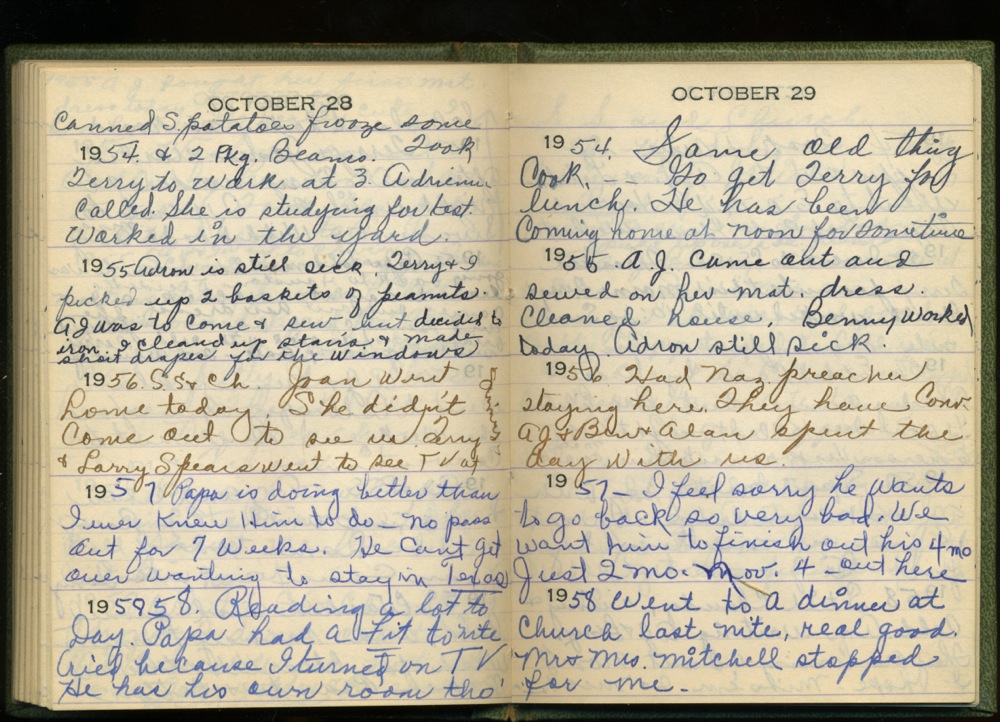 OCTOBER 28
Canned S. potatoes frooze some
1954. & 2 Pkg. Beans. Took
Terry to work at 3. Adrienne
called. She is studying for test.
Worked in the yard.
1955 Adron is still sick. Terry & I
picked up 2 baskets of peanuts.
AJ was to come & sew but decided to
iron. I cleand up stairs & made
short drapes for the windows
1956. S.S & Ch. Joan went
home today. She didn't
come out to see us. Terry
& Larry Spears went to see TV at
1957 Papa is doing better than
I ever knew him to do – no pass
out for 7 weeks. He can't get
over wanting to stay in Texas
195958. Reading a lot to
Day. Papa had a Fit tonite
cried because I turned on TV
He has his own room tho'
OCTOBER 29
1954. Same old thing
Cook. – – Go get Terry for
lunch. He has been
coming home at noon for sometime
1955. A.J. came out and
sewed on her mat. dress.
Cleaned house. Benny worked
today. Adron still sick.
1956. Had Naz preacher
staying here. They have Conv.
AJ & Ben & Alan spent the
day with us.
1957 – I feel sorry he wants
to go back so very bad. We
want him to finish out his 4 mo
Just 2 mo. Nov. 4 – out here
1958 Went to a dinner at
Church last nite, real good.
Mr & Mrs. Mitchell stopped
for me. –